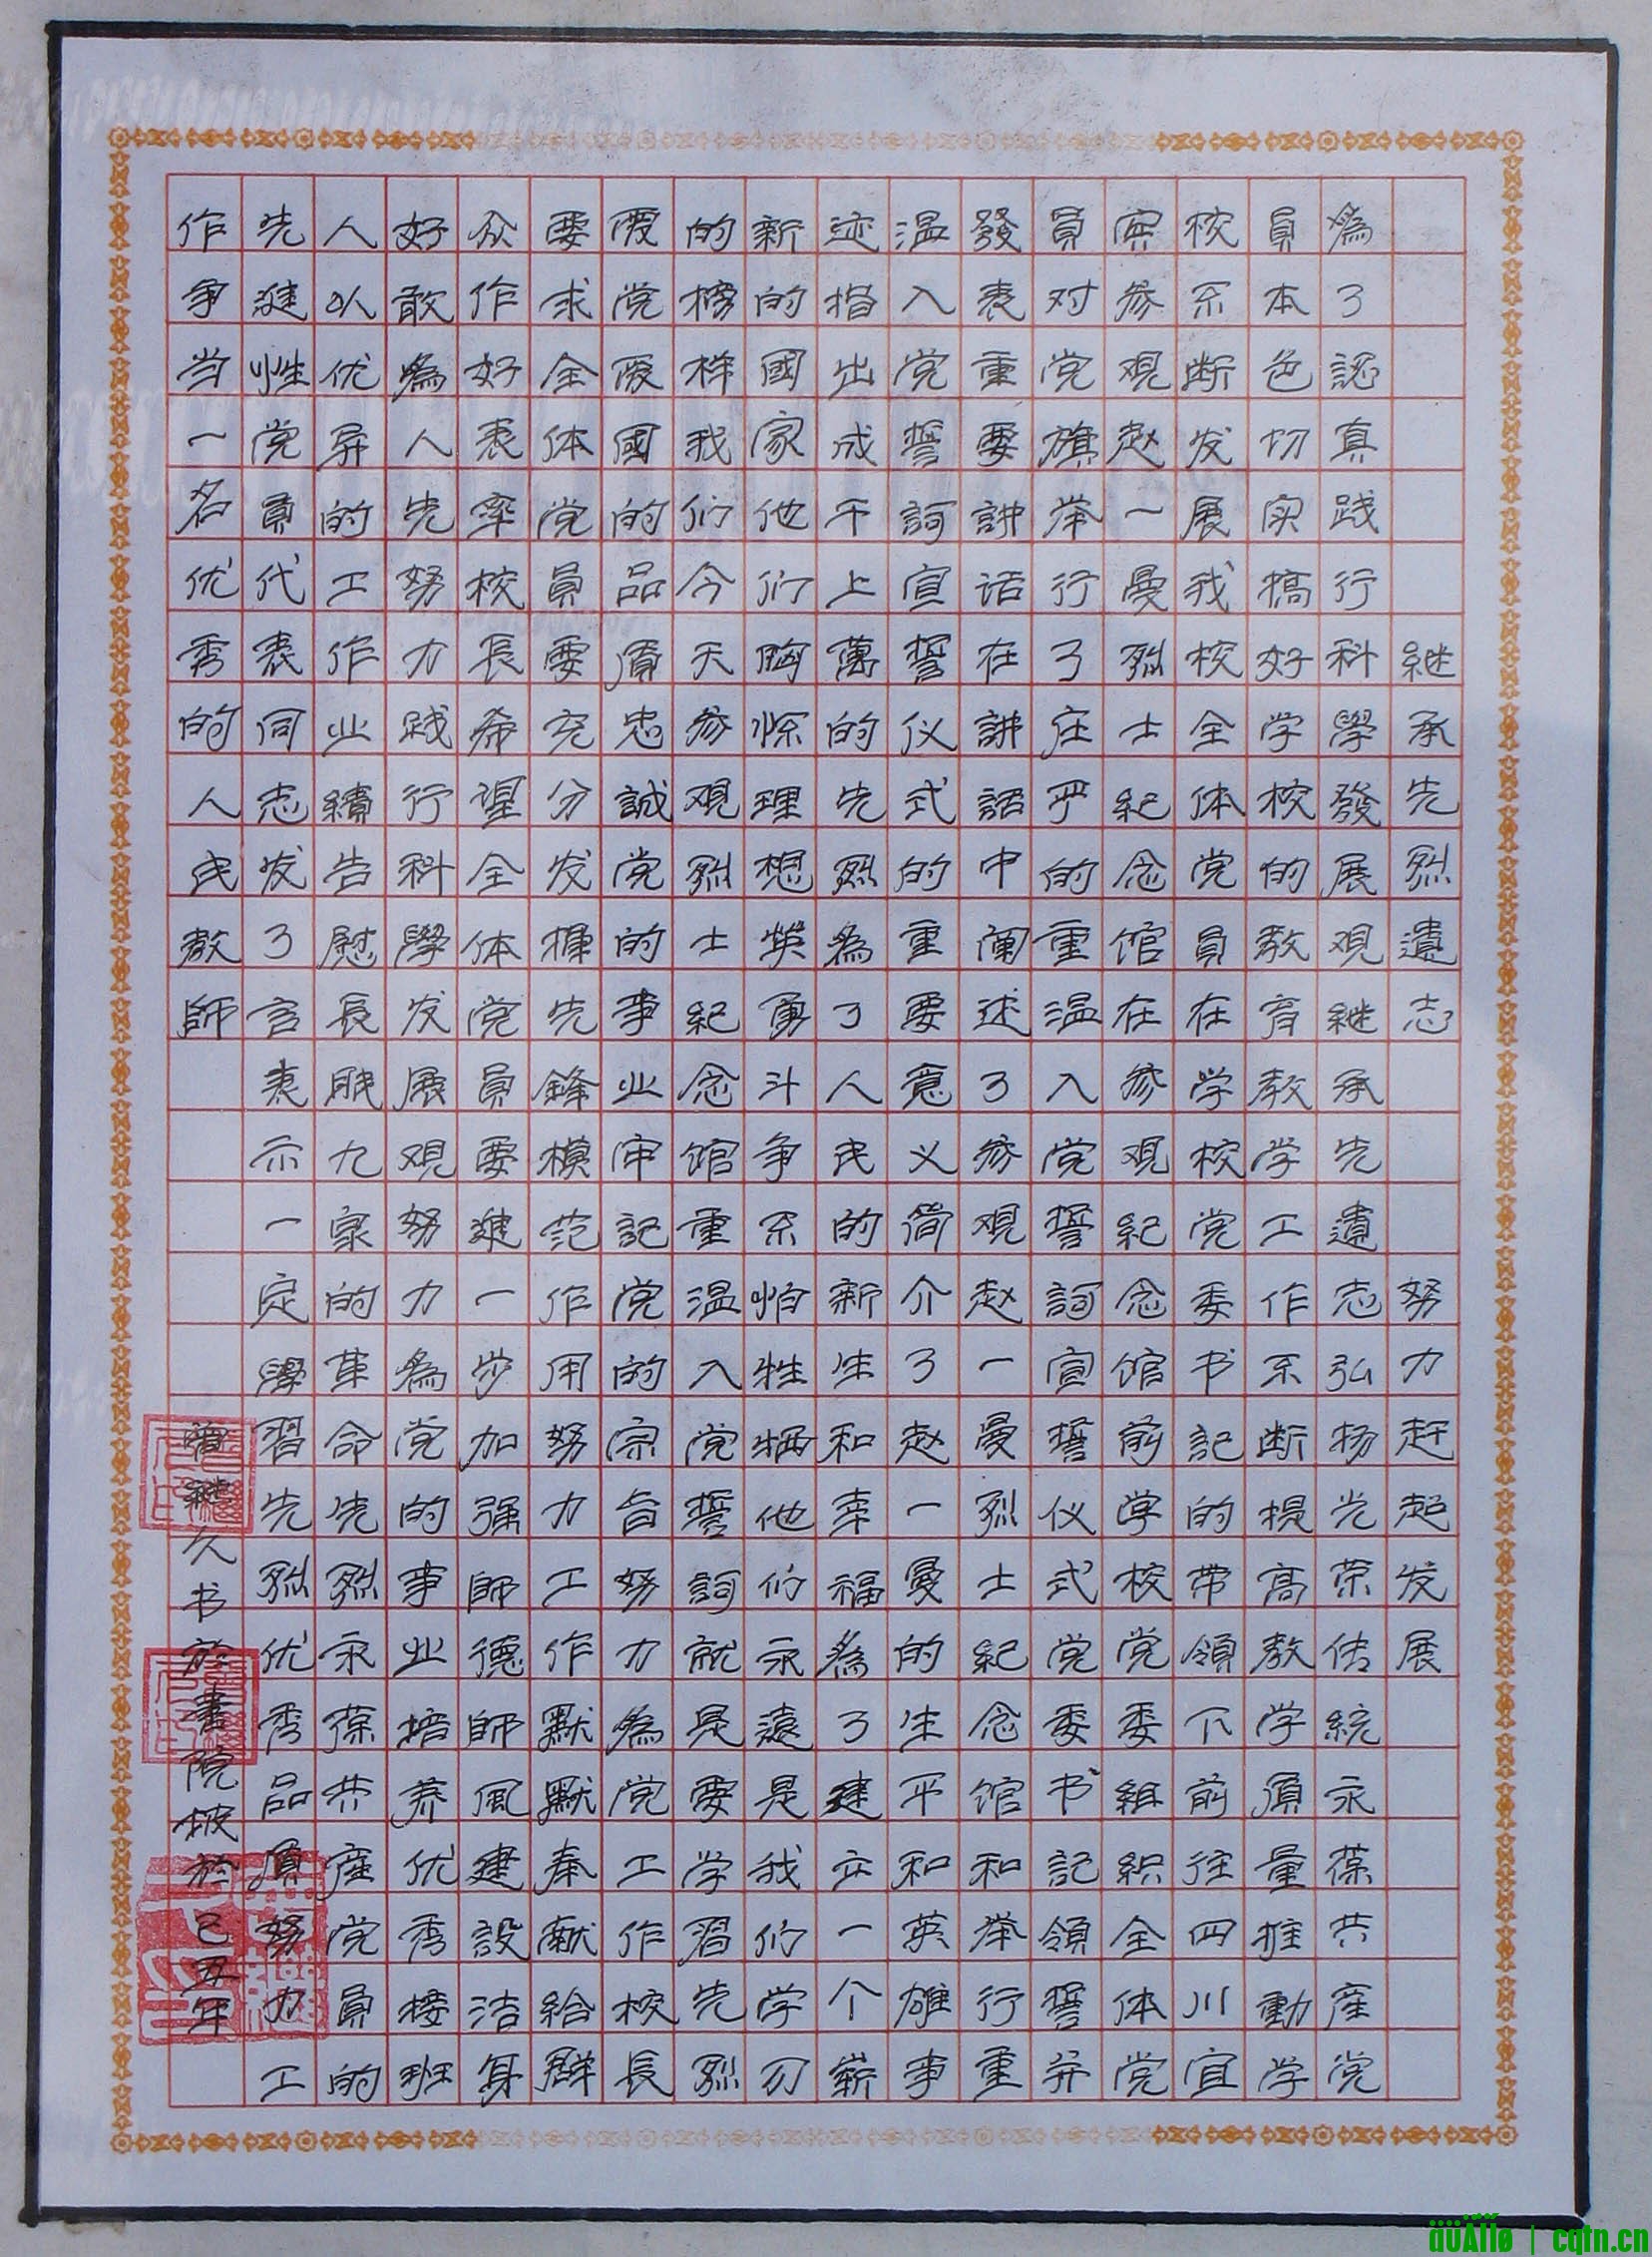 継承先烈遺志努力赶起发展
為了認真践行科學發展观継承先遺志弘扬光荣传統永葆共產党
員本色切实搞好学校的教育教学工作不断提高教学质量推動学
校不断发展我校全体党員在学校党委书記的带領下前往四川宜
宾参观赵一曼烈士紀念馆在参观紀念馆前学校党委組織全体党
員对党旗举行了庄严的重温入党誓詞宣誓仪式党委书記領誓并
發表重要講話在講話中阐述了参观赵一曼烈士紀念馆和举行重
温入党誓詞宣誓仪式的重要意义简介了赵一曼的生平和英雄事
迹指出成千上萬的先烈為了人民的新生和幸福為了建立一个崭
新的國家他们陶怀理想英勇斗争不怕牲牺他们永遠是我们学习
的榜样我们今天参观烈士紀念馆重温入党誓詞就是要学習先烈
爱党爱國的品质忠誠党的事业牢記党的宗旨努力為党工作校長
要求全体党員要充分发揮先鋒模范作用努力工作默默奉献給群
众作好表率校長希望全体党員要進一步加强師德師風建設洁身
好敢為人先努力践行科學发展观努力為党的事业培养优秀接班
人以优异的工作业績告慰長眠九泉的革命先烈永葆共產党員的
先進性党員代表同志发了言表示一定學習先烈优秀品质努力工
作争当一名优秀的人民教師
曾継久书於書院坡於己丑年
cqtn.cn